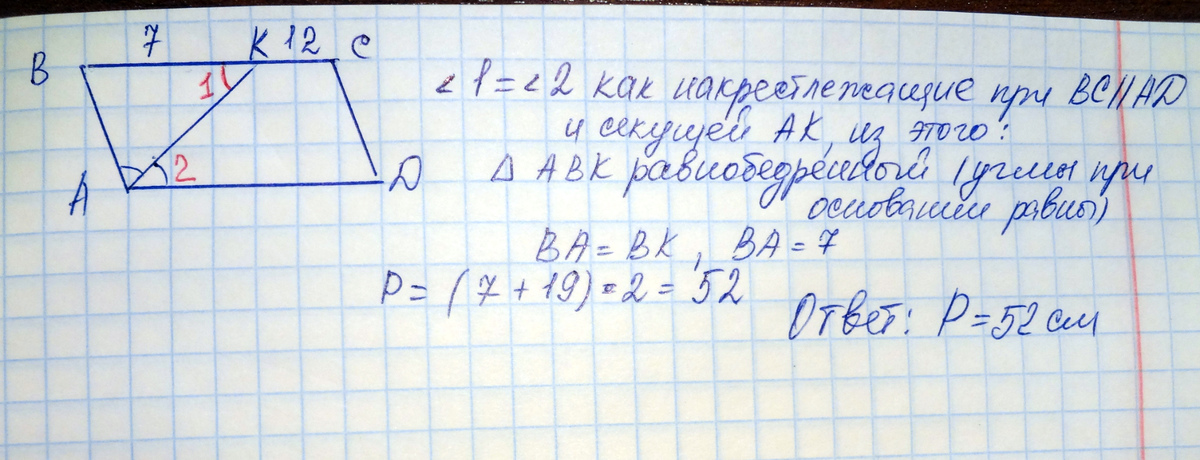 B 7 K 12 C
1
A 2 D
∠ 1 = ∠ 2 как накрестлежащие при BC || AD
и секущей AK, из этого:
Δ ABK равнобедренный (углы при
основании равны)
BA = BK, BA = 7
P = (7 + 19) · 2 = 52
Ответ: P = 52 см